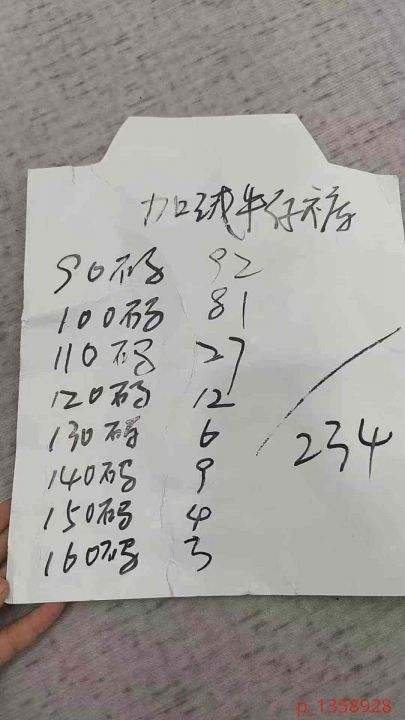 加绒牛仔裤
90码 92
100码 81
110码 27
120码 12
130码 6
140码 9
150码 4
160码 3
234
p_1358928